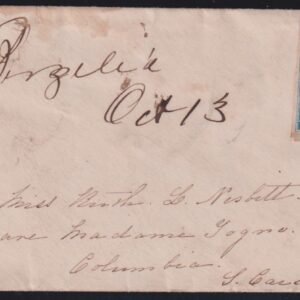 Oct 13
Miss Ruth L. Nesbitt
Care Madame Togno
Columbia
S. Car